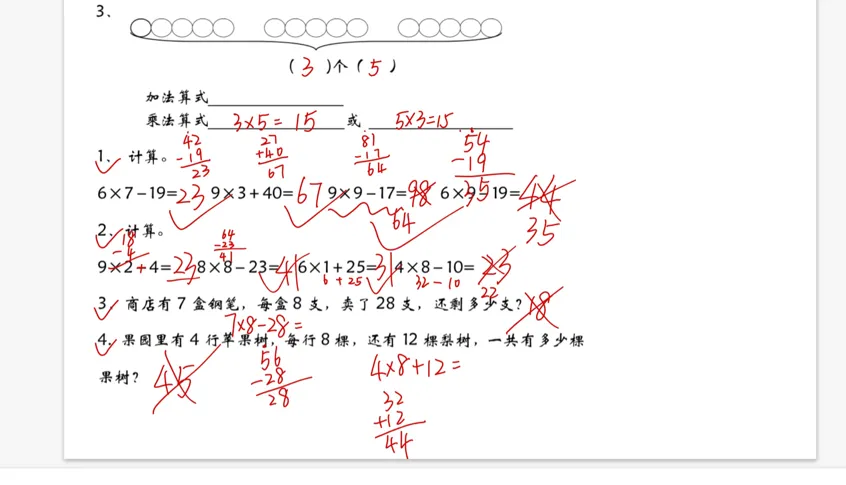 3、
( 3 )个 ( 5 )
加法算式
乘法算式 3×5= 15 或 5×3=15
42 27 81 54
-19 +40 -17 -19
23 67 64 35
1、计算。
6×7-19=23 9×3+40=67 9×9-17=98 6×9-19=44
64 35
2、计算。
18 64
-4 -23
41
9×2+4=23 8×8-23=41 6×1+25=31 4×8-10=23
6 +25 32-10 22
3、商店有 7 盒钢笔，每盒 8 支，卖了 28 支，还剩多少支？18
7×8-28=
4、果园里有 4 行苹果树，每行 8 棵，还有 12 棵梨树，一共有多少棵
果树？ 45
56 4×8+12=
-28
28
32
+12
44